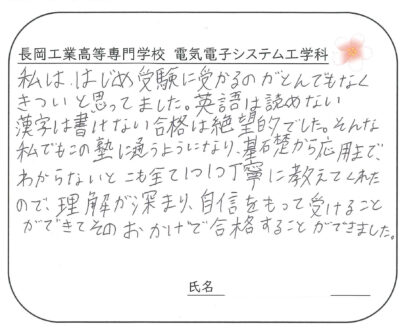 長岡工業高等専門学校 電気電子システム工学科
私は、はじめ受験に受かるのがとんでもなく
きついと思ってました。英語は読めない
漢字は書けない合格は絶望的でした。そんな
私でもこの塾に通うようになり、基礎から応用まで、
わからないところも全て1つ1つ丁寧に教えてくれた
ので、理解が深まり、自信をもって受けること
ができてそのおかげで合格することができました。
氏名